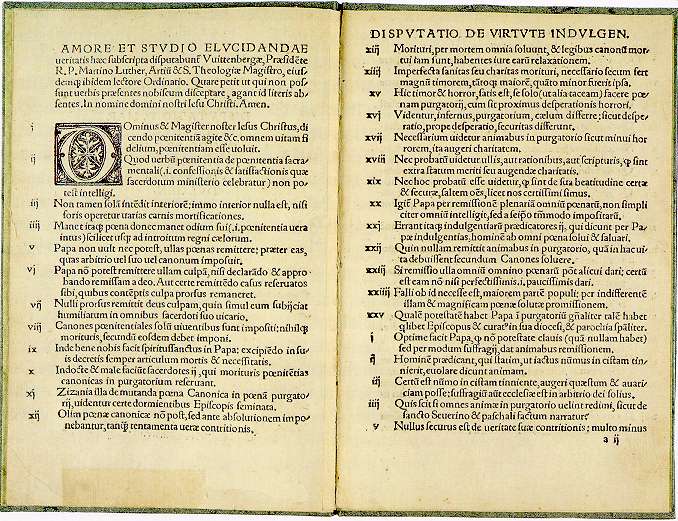 AMORE ET STVDIO ELVCIDANDAE
ueritatis hæc subscripta disputabunt̃ Vuittenbergæ, Præsidẽte
R. P. Martino Luther, Artiũ & S. Theologiæ Magistro, eius-
dem ibidem lectore Ordinatio. Quare petit ut qui non pos-
sunt uerbis præsentes nobiscum disceptare, agant id literis ab-
sentes. In nomine domini nostri Iesu Christi. Amen.
i DOminus & Magister noster Iesus Christus, di-
cendo pœnitentiã agite &c. omnem uitam fi
delium, pœnitentiam esse uoluit.
ij Quod uerbũ pœnitentia de pœnitentia sacra-
mentali (.i. confessionis & satisfactionis quæ
sacerdotum ministerio celebratur) non po-
test intelligi.
iij Non tamen solã intẽdit interiorẽ: immo interior nulla est, nisi
foris operetur uarias carnis mortificationes.
iiij Manet itaq̃ pœna donec manet odium sui (.i. pœnitentia uera
intus) scilicet usq̃ ad introitum regni cælorum.
v Papa non uult nec potest, ullas pœnas remittere: præter eas,
quas arbitrio uel suo uel canonum imposuit.
vj Papa nõ potest remittere ullam culpã, nisi declarãdo & appro-
bando remissam a deo. Aut certe remittẽdo casus reseruatos
sibi, quibus contẽptis culpa prorsus remaneret.
vij Nulli prorsus remittit deus culpam, quin simul eum subijciat
humiliatum in omnibus sacerdoti suo uicario.
viij Canones pœnitentiales solũ uiuentibus sunt impositi: nihilq̃
morituris, secundũ eosdem debet imponi.
ix Inde bene nobis facit spiritussanctus in Papa: excipiẽdo in su-
is decretis semper articulum mortis & necessitatis.
x Indocte & male faciũt sacerdotes ij, qui morituris pœnitẽtias
canonicas in purgatorium reseruant.
xj Zizania illa de mutanda pœna Canonica in pœnã purgato-
rij, uidentur certe dormientibus Episcopis seminata.
xij Olim pœnæ canonicæ nõ post, sed ante absolutionem impo-
nebantur, tanq̃ tentamenta ueræ contritionis.
DISPVTATIO DE VIRTVTE INDVLGEN.
xiij Morituri, per mortem omnia soluunt, & legibus canonũ mor-
tui iam sunt, habentes iure earũ relaxationem.
xiiij Imperfecta sanitas seu charitas morituri, necessario secum fert
magnũ timorem, tãtoq̃ maiorẽ, quãto minor fuerit ipsa.
xv Hic timor & horror, satis est, se solo (ut alia taceam) facere pœ-
nam purgatorij, cum sit proximus desperationis horrori.
xvj Videntur, infernus, purgatorium, cælum differre: sicut despe-
ratio, prope desperatio, securitas differunt.
xvij Necessarium uidetur animabus in purgatorio sicut minui hor
rorem, ita augeri charitatem.
xviij Nec probatũ uidetur ullis, aut rationibus, aut scripturis, q̃ sint
extra statum meriti seu augendæ charitatis.
xix Nec hoc probatũ esse uidetur, q̃ sint de sua beatitudine certæ
& securæ, saltem oẽs, licet nos certissimi simus.
xx Igit̃ Papa per remissionem plenariã omnium pœnarũ, non simpli
citer omniũ intelligit, sed a seipõ tm̃modo impositarũ.
xxj Errant itaq̃ indulgentiarũ prædicatores ij, qui dicunt per Pa-
pæ indulgentias, hominẽ ab omni pœna solui & saluari.
xxij Quin nullam remittit animabus in purgatorio, quã in hac ui-
ta debuissent secundum Canones soluere.
xxiij Si remissio ulla omniũ omnino pœnarũ põt alicui dari; certũ
est eam nõ nisi perfectissimis .i. paucissimis dari.
xxiiij Falli ob id necesse est, maiorem partẽ populi: per indifferentẽ
illam & magnificam pœnæ solutæ promissionem.
xxv Qualẽ potestatẽ habet Papa ĩ purgatoriũ gñaliter talẽ habet
q̃libet Episcopus & curatꝰ in sua diocesi, & parochia spãliter.
i Optime facit Papa, q̃ nõ potestate clauis (quã nullam habet)
sed per modum suffragij, dat animabus remissionem.
ij Hominẽ prædicant, qui statim, ut iactus nũmus in cistam tin-
nierit, euolare dicunt animam.
iij Certũ est nũmo in cistam tinniente, augeri quæstum & auari-
ciam posse; suffragiũ aũt ecclesiæ est in arbitrio dei solius.
iiij Quis scit si omnes animæ in purgatorio uelint redimi, sicut de
sancto Seuerino & paschali factum narratur.
v Nullus securus est de ueritate suæ contritionis; multo minus
a ij